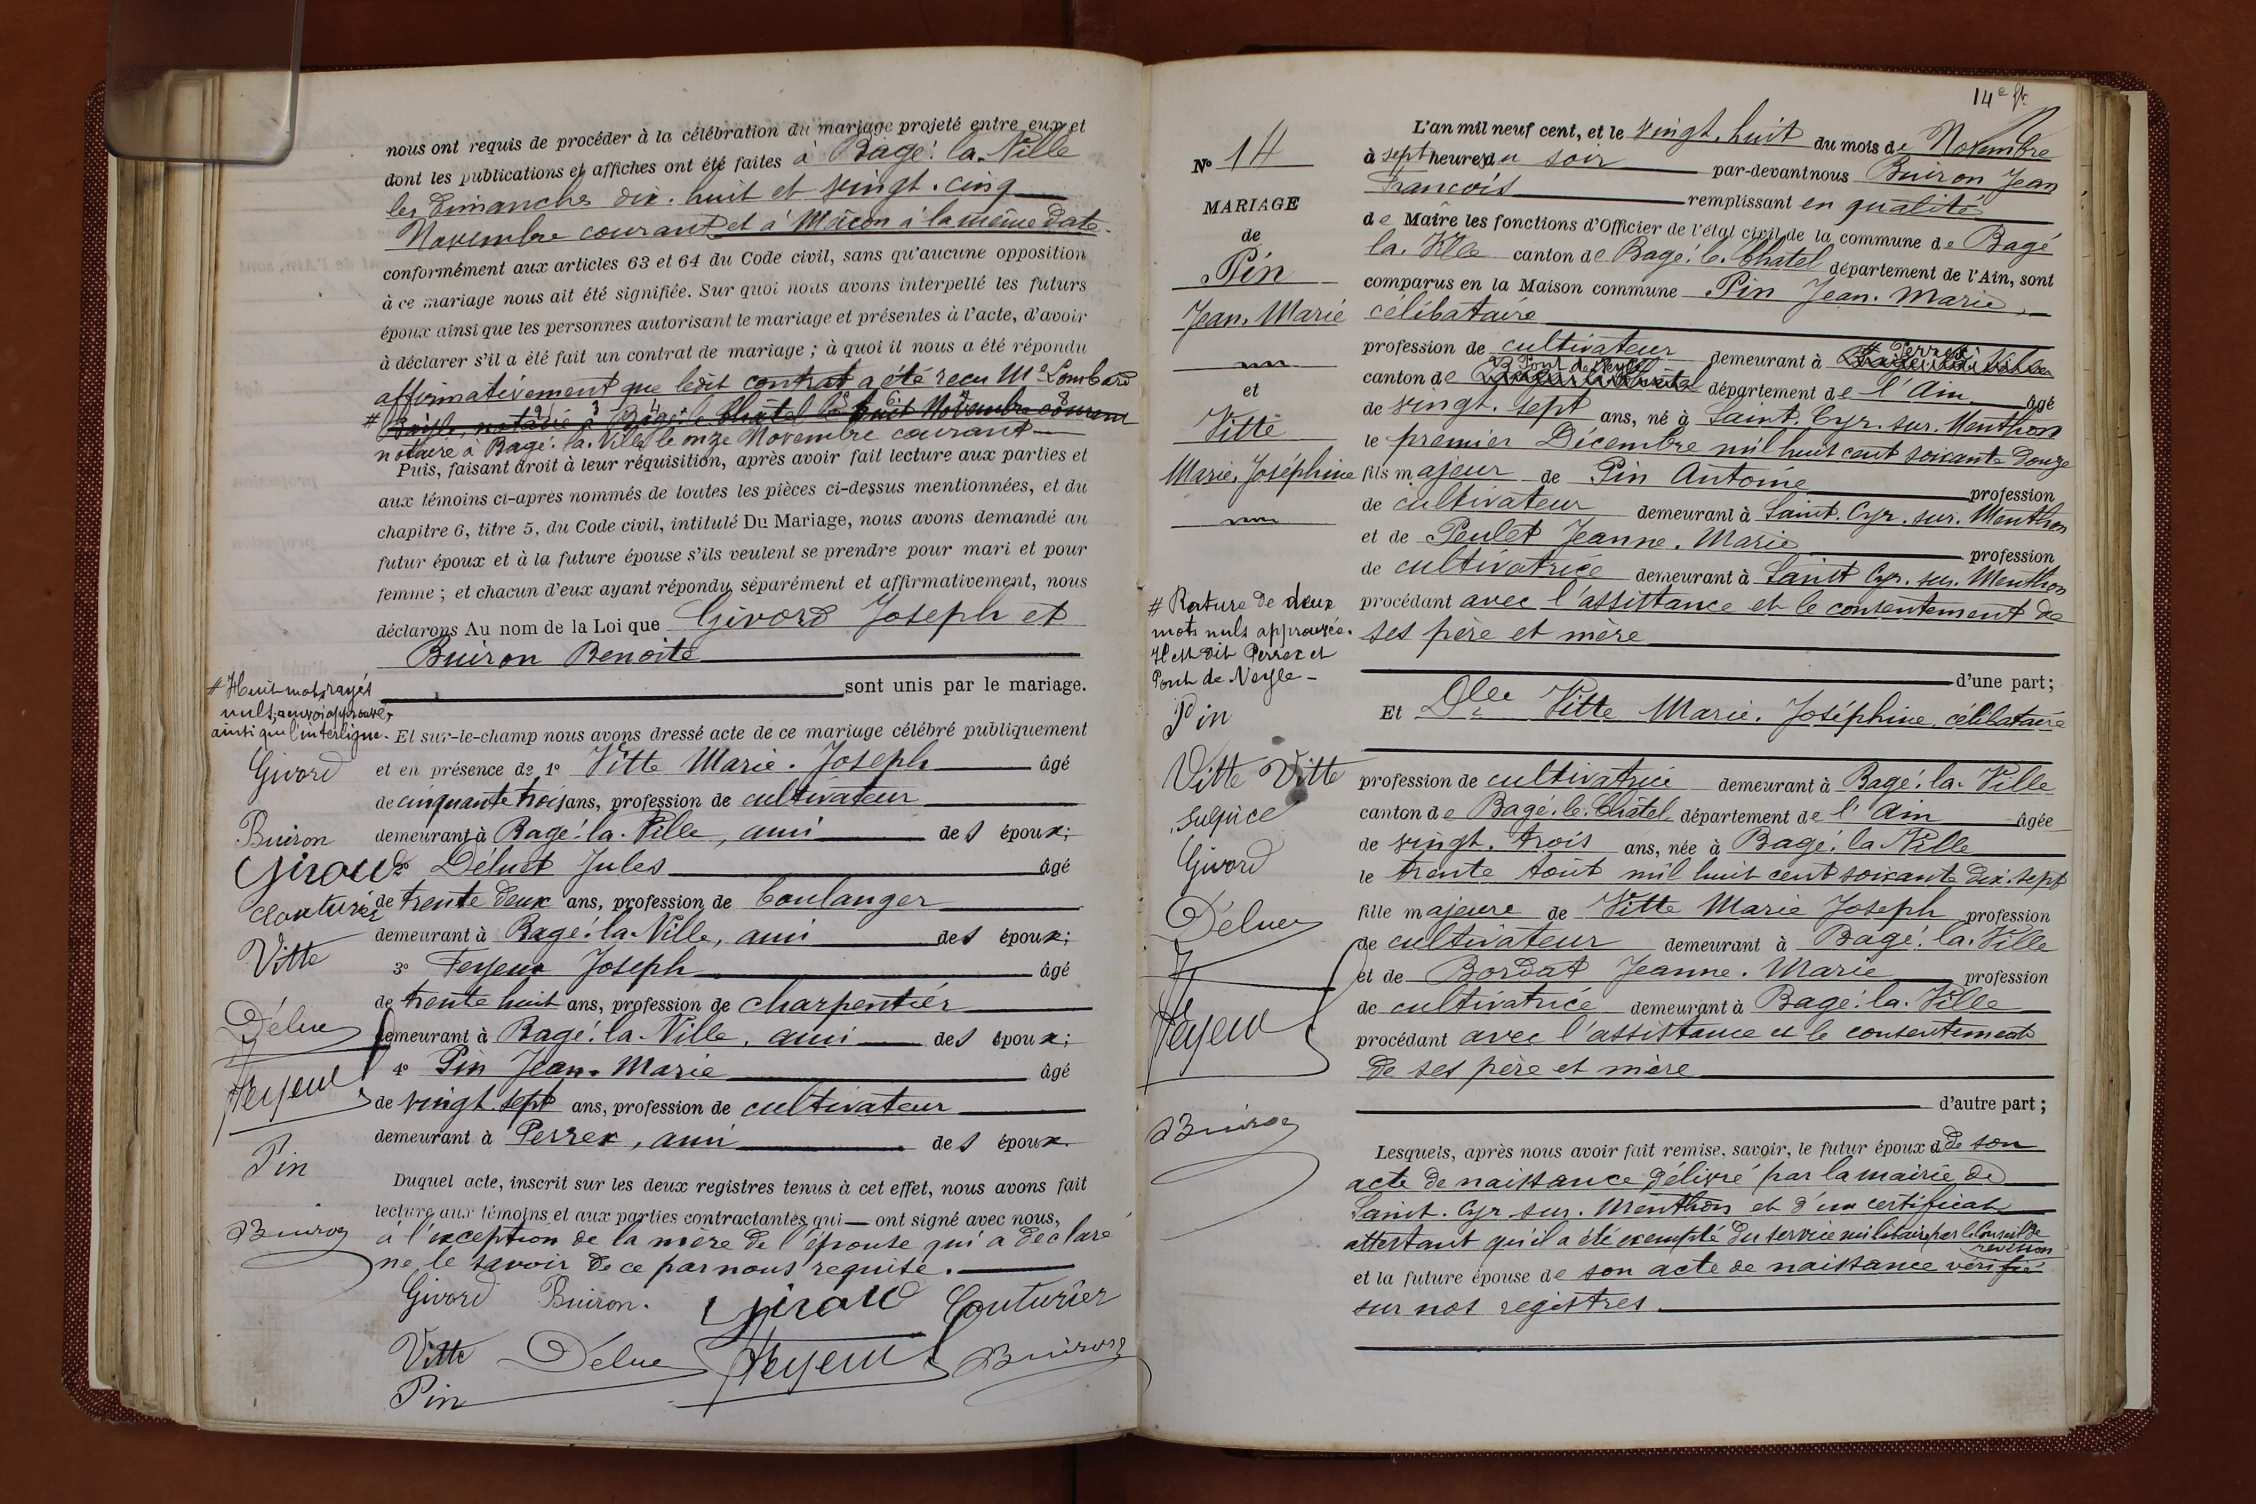 nous ont requis de procéder à la célébration du mariage projeté entre eux et
dont les publications et affiches ont été faites à Bagé-la-Ville
les Dimanches dix-huit et vingt-cinq
Novembre courant et à Mâcon à la même date
conformément aux articles 63 et 64 du Code civil, sans qu'aucune opposition
à ce mariage nous ait été signifiée. Sur quoi nous avons interpellé les futurs
époux ainsi que les personnes autorisant le mariage et présentes à l'acte, d'avoir
à déclarer s'il a été fait un contrat de mariage ; à quoi il nous a été répondu
affirmativement que ledit contrat a été reçu Me Lombard
# notaire à Bagé-le-Châtel le huit Novembre courant
notaire à Bagé-la-Ville le onze Novembre courant
Puis, faisant droit à leur réquisition, après avoir fait lecture aux parties et
aux témoins ci-après nommés de toutes les pièces ci-dessus mentionnées, et du
chapitre 6, titre 5, du Code civil, intitulé Du Mariage, nous avons demandé au
futur époux et à la future épouse s'ils veulent se prendre pour mari et pour
femme ; et chacun d'eux ayant répondu séparément et affirmativement, nous
déclarons Au nom de la Loi que Givord Joseph et
Buiron Benoite
sont unis par le mariage.
# Huit mots rayés
nuls, renvoi approuvé,
ainsi que l'interligne.
Et sur-le-champ nous avons dressé acte de ce mariage célébré publiquement
et en présence de 1° Vitte Marie-Joseph âgé
de cinquante trois ans, profession de cultivateur
demeurant à Bagé-la-Ville, ami des époux;
2° Deluet Jules âgé
de trente deux ans, profession de boulanger
demeurant à Bagé-la-Ville, ami des époux;
3° Feyeux Joseph âgé
de trente huit ans, profession de charpentier
demeurant à Bagé-la-Ville, ami des époux;
4° Pin Jean-Marie âgé
de vingt-sept ans, profession de cultivateur
demeurant à Perrex, ami des époux.
Duquel acte, inscrit sur les deux registres tenus à cet effet, nous avons fait
lecture aux témoins et aux parties contractantes qui ont signé avec nous,
à l'exception de la mère de l'épouse qui a déclaré
ne le savoir de ce par nous requise.
Givord Buiron. Girard Couturier
Vitte Delue Feyeux Buiron
Pin
Givord
Buiron
Girard
Couturier
Vitte
Delue
Feyeux
Pin
Buiron
14e ft
N° 14
MARIAGE
de
Pin
Jean-Marie
et
Vitte
Marie-Joséphine
# Rature de deux
mots nuls approuvée.
Il est dit Perrex et
Pont de Veyle
Pin
Vitte Vitte
Sulpice
Givord
Delue
Feyeux
Buiron
L'an mil neuf cent, et le vingt-huit du mois de Novembre
à sept heures du soir par-devant nous Buiron Jean
François remplissant en qualité
de Maire les fonctions d'Officier de l'état civil de la commune de Bagé
la-Ville canton de Bagé-le-Châtel département de l'Ain, sont
comparus en la Maison commune Pin Jean-Marie,
célibataire
profession de cultivateur demeurant à # Perrex Bagé-la-Ville
canton de Pont de Veyle Bagé-le-Châtel département de l'Ain âgé
de vingt-sept ans, né à Saint-Cyr-sur-Menthon
le premier Décembre mil huit cent soixante douze
fils majeur de Pin Antoine profession
de cultivateur demeurant à Saint-Cyr-sur-Menthon
et de Peulet Jeanne-Marie profession
de cultivatrice demeurant à Saint Cyr-sur-Menthon
procédant avec l'assistance et le consentement de
ses père et mère
d'une part;
Et Dlle Vitte Marie-Joséphine, célibataire
profession de cultivatrice demeurant à Bagé-la-Ville
canton de Bagé-le-Châtel département de l'Ain âgée
de vingt-trois ans, née à Bagé-la-Ville
le trente Août mil huit cent soixante dix-sept
fille majeure de Vitte Marie Joseph profession
de cultivateur demeurant à Bagé-la-Ville
et de Bordat Jeanne-Marie profession
de cultivatrice demeurant à Bagé-la-Ville
procédant avec l'assistance et le consentement
de ses père et mère
d'autre part ;
Lesquels, après nous avoir fait remise, savoir, le futur époux de son
acte de naissance délivré par la mairie de
Saint-Cyr-sur-Menthon et d'un certificat
attestant qu'il a été exempté du service militaire par le Conseil de
révision
et la future épouse de son acte de naissance vérifié
sur nos registres.